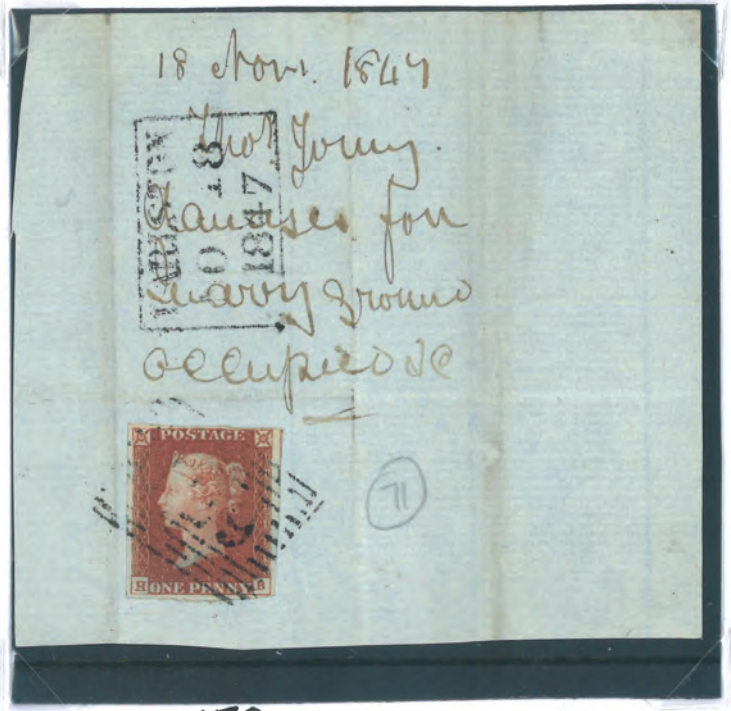 18 Novr. 1847
Thos Young.
Damages for
quarry ground
occupied &c
18
1847
POSTAGE
H ONE PENNY B
71